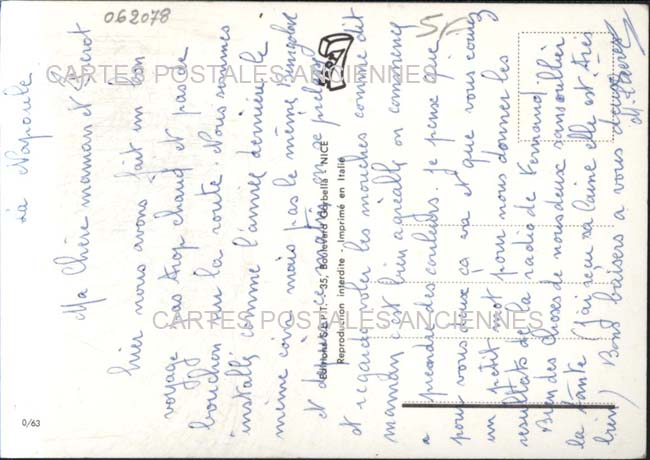 062078
La Napoule
Ma Chère maman et
hier nous avons fait un bon
voyage pas trop chaud et pas de
bouchon sur la route. Nous sommes
installés comme l'année dernière le
même coin mais pas le même
et ce matin on se
et regarde voler les mouches comme dit
maman c'est bien agréable on commence
a prendre des couleurs. Je pense que
pour vous deux ça va et que vous
un petit mot pour nous donner les
résultats de la radio de Fernand
Bien des choses de nous deux
la tante (J'ai reçu sa laine elle est très
bien) Bons baisers a vous deux
CARTES POSTALES ANCIENNES
CARTES POSTALES ANCIENNES
Editions S.E.P.T. - 35, Boulevard Gorbella - NICE
Reproduction interdite - Imprimé en Italie
0/63